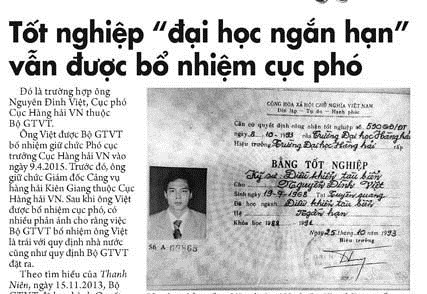 Tốt nghiệp “đại học ngắn hạn”
vẫn được bổ nhiệm cục phó
Đó là trường hợp ông
Nguyễn Đình Việt, Cục phó
Cục Hàng hải VN thuộc
Bộ GTVT.
Ông Việt được Bộ GTVT
bổ nhiệm giữ chức Phó cục
trưởng Cục Hàng hải VN vào
ngày 9.4.2015. Trước đó, ông
giữ chức Giám đốc Cảng vụ
hàng hải Kiên Giang thuộc Cục
Hàng hải VN. Sau khi ông Việt
được bổ nhiệm cục phó, có
nhiều phản ánh cho rằng việc
Bộ GTVT bổ nhiệm ông Việt
là trái với quy định nhà nước
cũng như quy định Bộ GTVT
đặt ra.
Theo tìm hiểu của Thanh
Niên, ngày 15.11.2013, Bộ
CỘNG HÒA XÃ HỘI CHỦ NGHĨA VIỆT NAM
Độc lập - Tự do - Hạnh phúc
Căn cứ quyết định công nhận tốt nghiệp số
ngày 8-10-1993 của Trường Đại học Hàng hải
Hiệu trưởng Trường Đại học Hàng hải cấp
BẰNG TỐT NGHIỆP
Kỹ sư Điều khiển tàu biển
Nguyễn Đình Việt
Sinh ngày 19-9-1968 Tuyên quang
Ngành học Điều khiển tàu biển
Hệ Ngắn hạn
Khóa học
Ngày 25 tháng 10 năm 1993
Hiệu trưởng
Số A